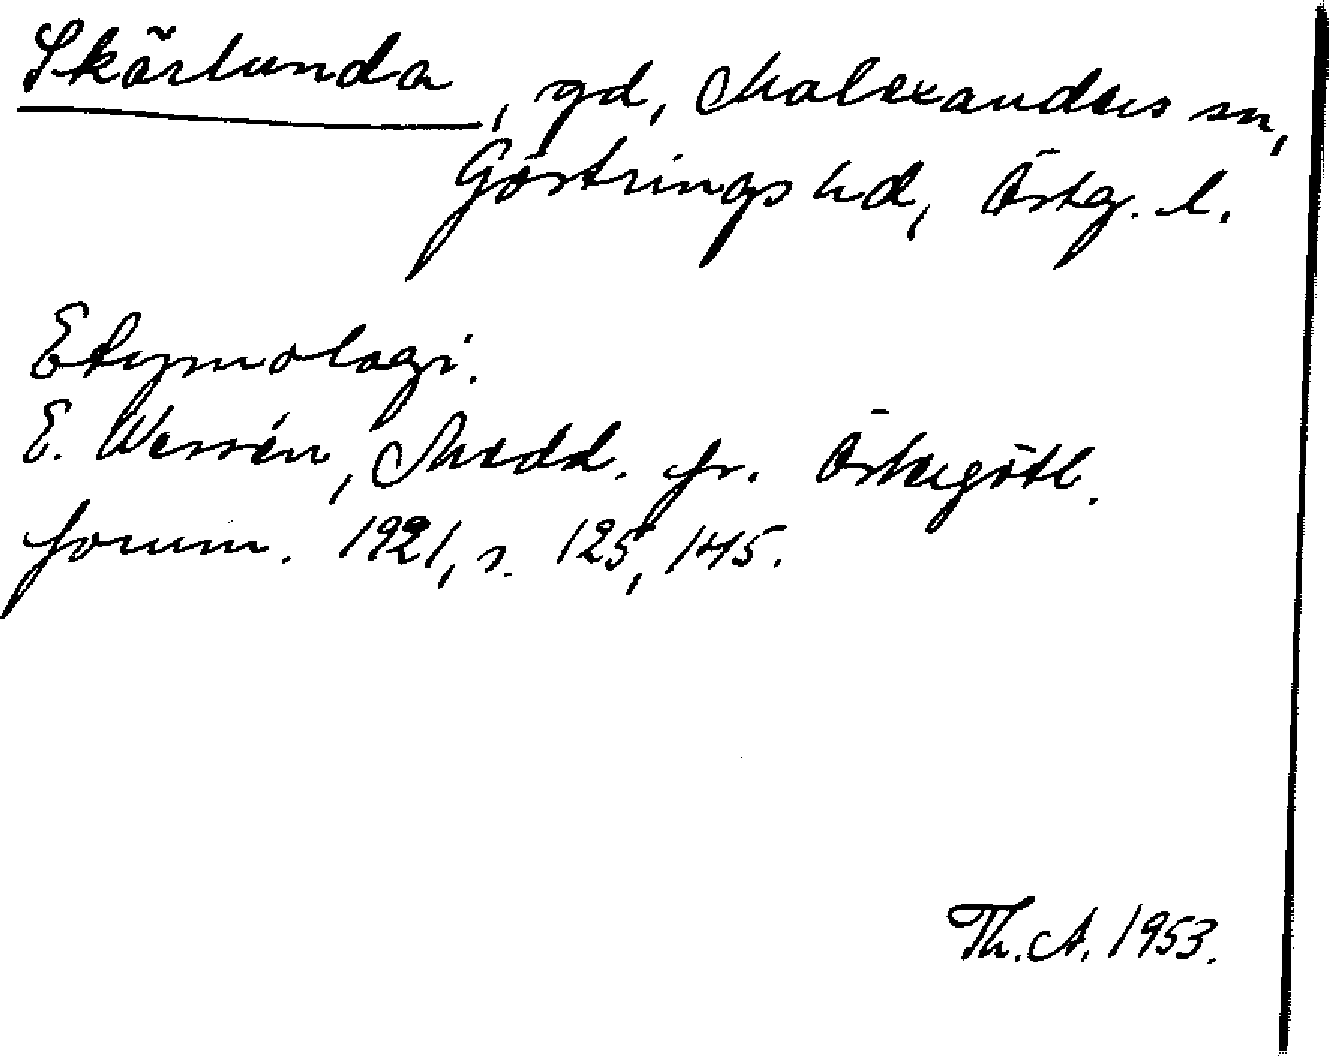 Skärlunda, gd, Malexanders sn,
Göstrings hd, Östg. l.
Etymologi.
E. Wessén, Medd. fr. Östergötl.
fornm. 1921, s. 125, 145.
Th. A. 1953.